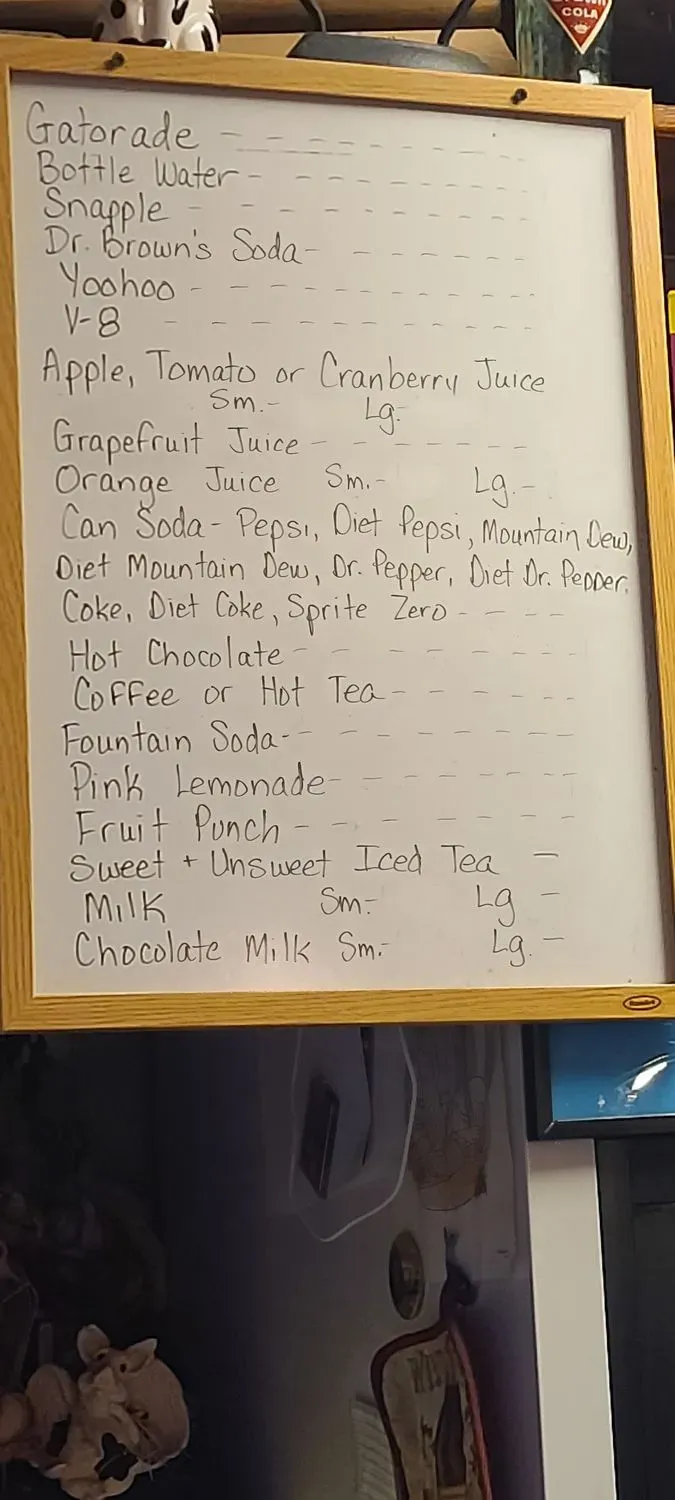 COLA
Gatorade - - - - - - - -
Bottle Water - - - - - - - -
Snapple - - - - - - - - -
Dr. Brown's Soda - - - - - - -
Yoohoo - - - - - - - - - -
V-8 - - - - - - - - -
Apple, Tomato or Cranberry Juice
Sm.- Lg.-
Grapefruit Juice - - - - - - -
Orange Juice Sm.- Lg.-
Can Soda - Pepsi, Diet Pepsi, Mountain Dew,
Diet Mountain Dew, Dr. Pepper, Diet Dr. Pepper,
Coke, Diet Coke, Sprite Zero - - - -
Hot Chocolate - - - - - - - -
Coffee or Hot Tea - - - - - -
Fountain Soda - - - - - - - -
Pink Lemonade - - - - - - - -
Fruit Punch - - - - - - -
Sweet + Unsweet Iced Tea -
Milk Sm.- Lg -
Chocolate Milk Sm.- Lg. -